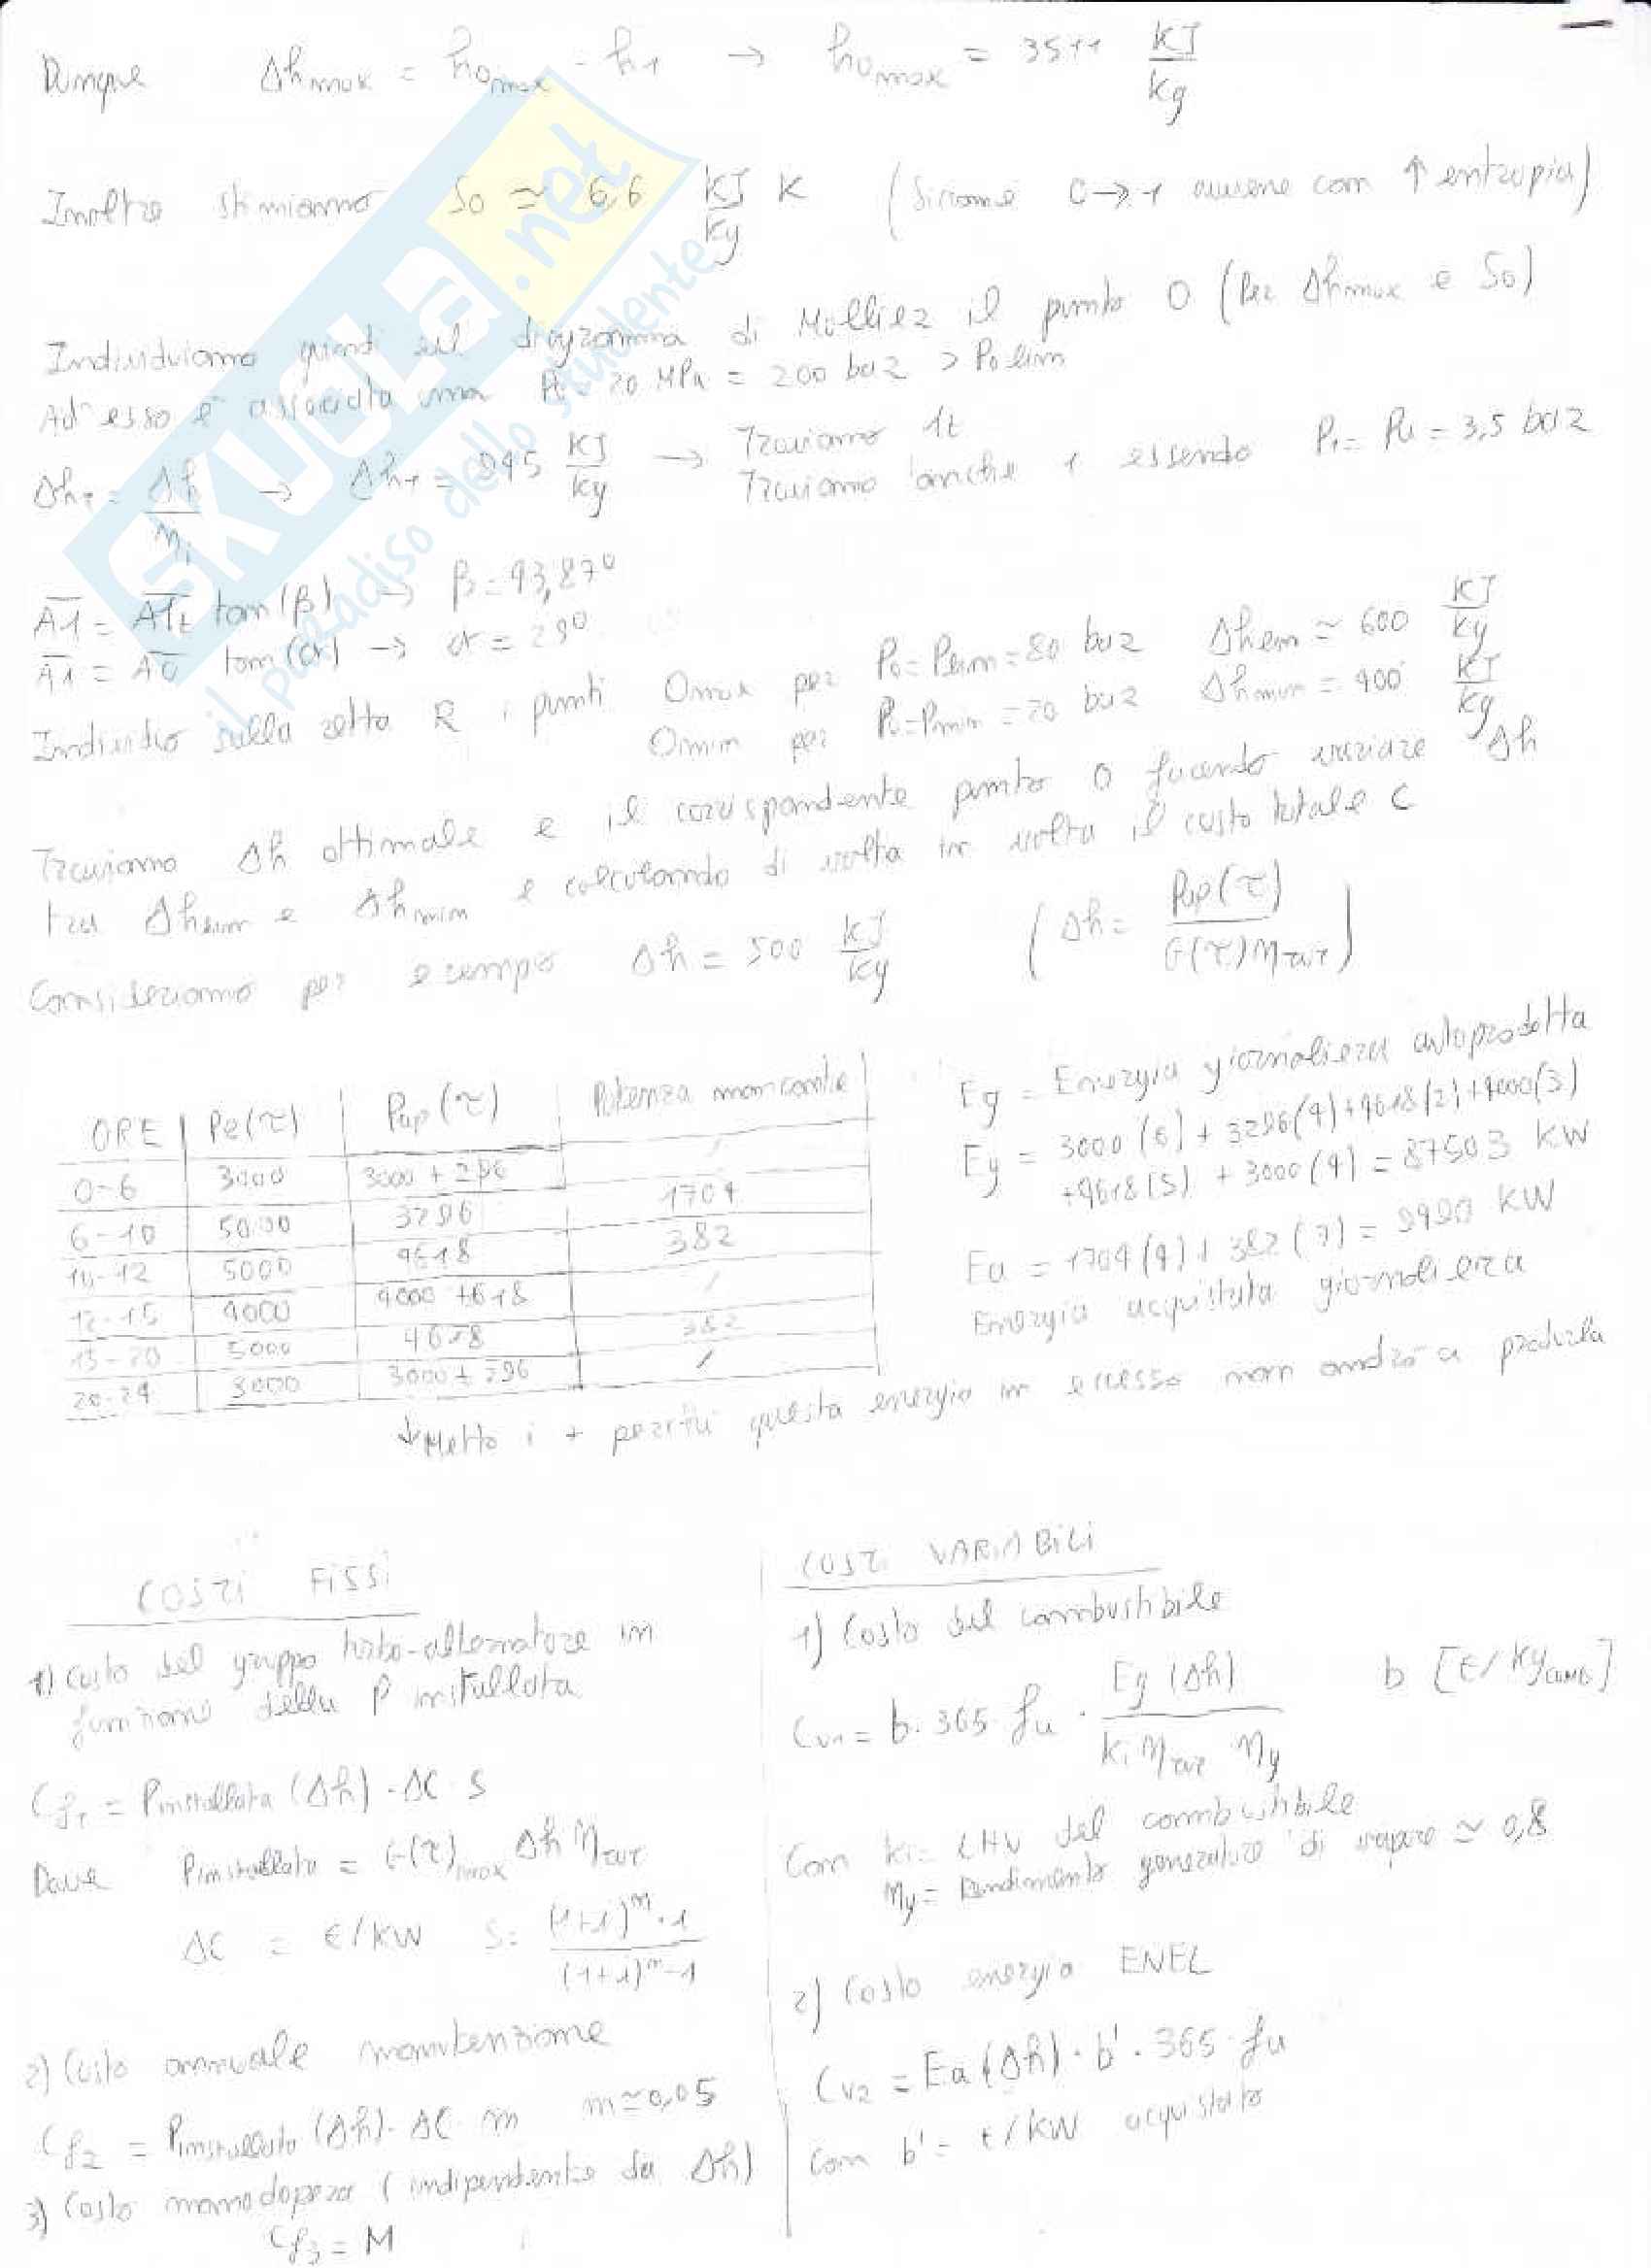 Dunque Δh max = h0max - h1 → h0max = 3511 KJ/kg
Inoltre stimiamo S0 ≃ 6,6 KJ/Kg K (siccome 0→1 avviene com ↑ entropia)
Individuiamo quindi sul diagramma di Mollier il punto 0 (Per Δhmax e S0)
Ad esso è associata una P0 = 20 MPa = 200 bar > P0 lim
ΔhT = Δh/ηi → ΔhT = 945 KJ/kg → Troviamo 1t
Troviamo anche 1 essendo P1 = Pu = 3,5 bar
A1 = A1t tan(β) → β = 43,87°
A1 = A0 tan(α) → α = 29°
Individuo sulla retta R i punti Omax per P0=Plim=80 bar Δhlim ≃ 600 KJ/kg
Omin per P0=Pmin=20 bar Δhmin = 400 KJ/kg
Troviamo Δh ottimale e il corrispondente punto 0 facendo variare Δh
tra Δhlim e Δhmin e calcolando di volta in volta il costo totale C
Consideriamo per esempio Δh = 500 KJ/kg (Δh = Pap(τ)/G(τ)ηTAR)
ORE Pe(τ) Pap(τ) Potenza mancante
0-6 3000 3000 + 296 /
6-10 5000 3296 1704
10-12 5000 4618 382
12-15 4000 4000 +618 /
15-20 5000 4618 382
20-24 3000 3000 + 296 /
Eg = Energia giornaliera autoprodotta
Eg = 3000 (6) + 3296(4)+4618(2)+4000(3)
+4618(5) + 3000(4) = 87503 KW
Ea = 1704(4)+ 382(7) = 9490 KW
Energia acquistata giornaliera
↓ Metto i + perchè questa energia in eccesso non andrò a produrla
COSTI FISSI
1) Costo del gruppo turbo-alternatore in
funzione della P installata
Cf1 = Pinstallata (Δh) · ΔC · S
Dove Pinstallata = G(τ)max Δh ηTAR
ΔC = €/KW S = (1+i)^n · i / (1+i)^n-1
2) Costo annuale manutenzione
Cf2 = Pinstallata (Δh) · ΔC · m m≃0,05
3) Costo manodopera (indipendente da Δh)
Cf3 = M
COSTI VARIABILI
1) Costo del combustibile
Cv1 = b · 365 · fu · Eg (Δh) / Ki ηTAR ηg b [€/Kgcomb]
Con Ki = LHV del combustibile
ηg = Rendimento generatore di vapore ≃ 0,8
2) Costo energia ENEL
Cv2 = Ea (Δh) · b' · 365 · fu
Con b' = €/KW acquistato
SKUOLA.net
il paradiso dello studente